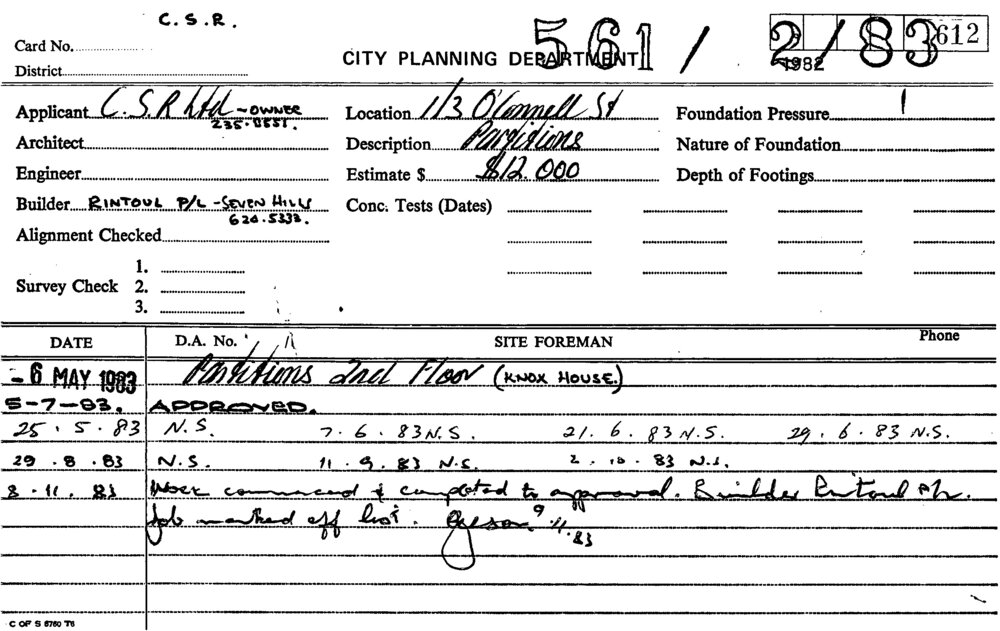 C.S.R.
Card No.
District
CITY PLANNING DEPARTMENT
561/2/83
1982
612
Applicant C.S.R Ltd - OWNER
235.8551.
Architect
Engineer
Builder RINTOUL P/L - SEVEN HILLS
620.5333.
Alignment Checked
Survey Check 1.
2.
3.
Location 1/3 O'Connell St
Description Partitions
Estimate $ $12.000
Conc. Tests (Dates)
Foundation Pressure
Nature of Foundation
Depth of Footings
DATE D.A. No. SITE FOREMAN Phone
- 6 MAY 1983 Partitions 2nd Floor (KNOX HOUSE.)
5-7-83. APPROVED.
25.5.83 N.S. 7.6.83 N.S. 21.6.83 N.S. 29.6.83 N.S.
29.8.83 N.S. 11.9.83 N.S. 2.10.83 N.S.
8.11.83 Work commenced & completed to approval. Builder Rintoul P/L.
Job marked off list. 9.11.83
C OF S 6760 T6